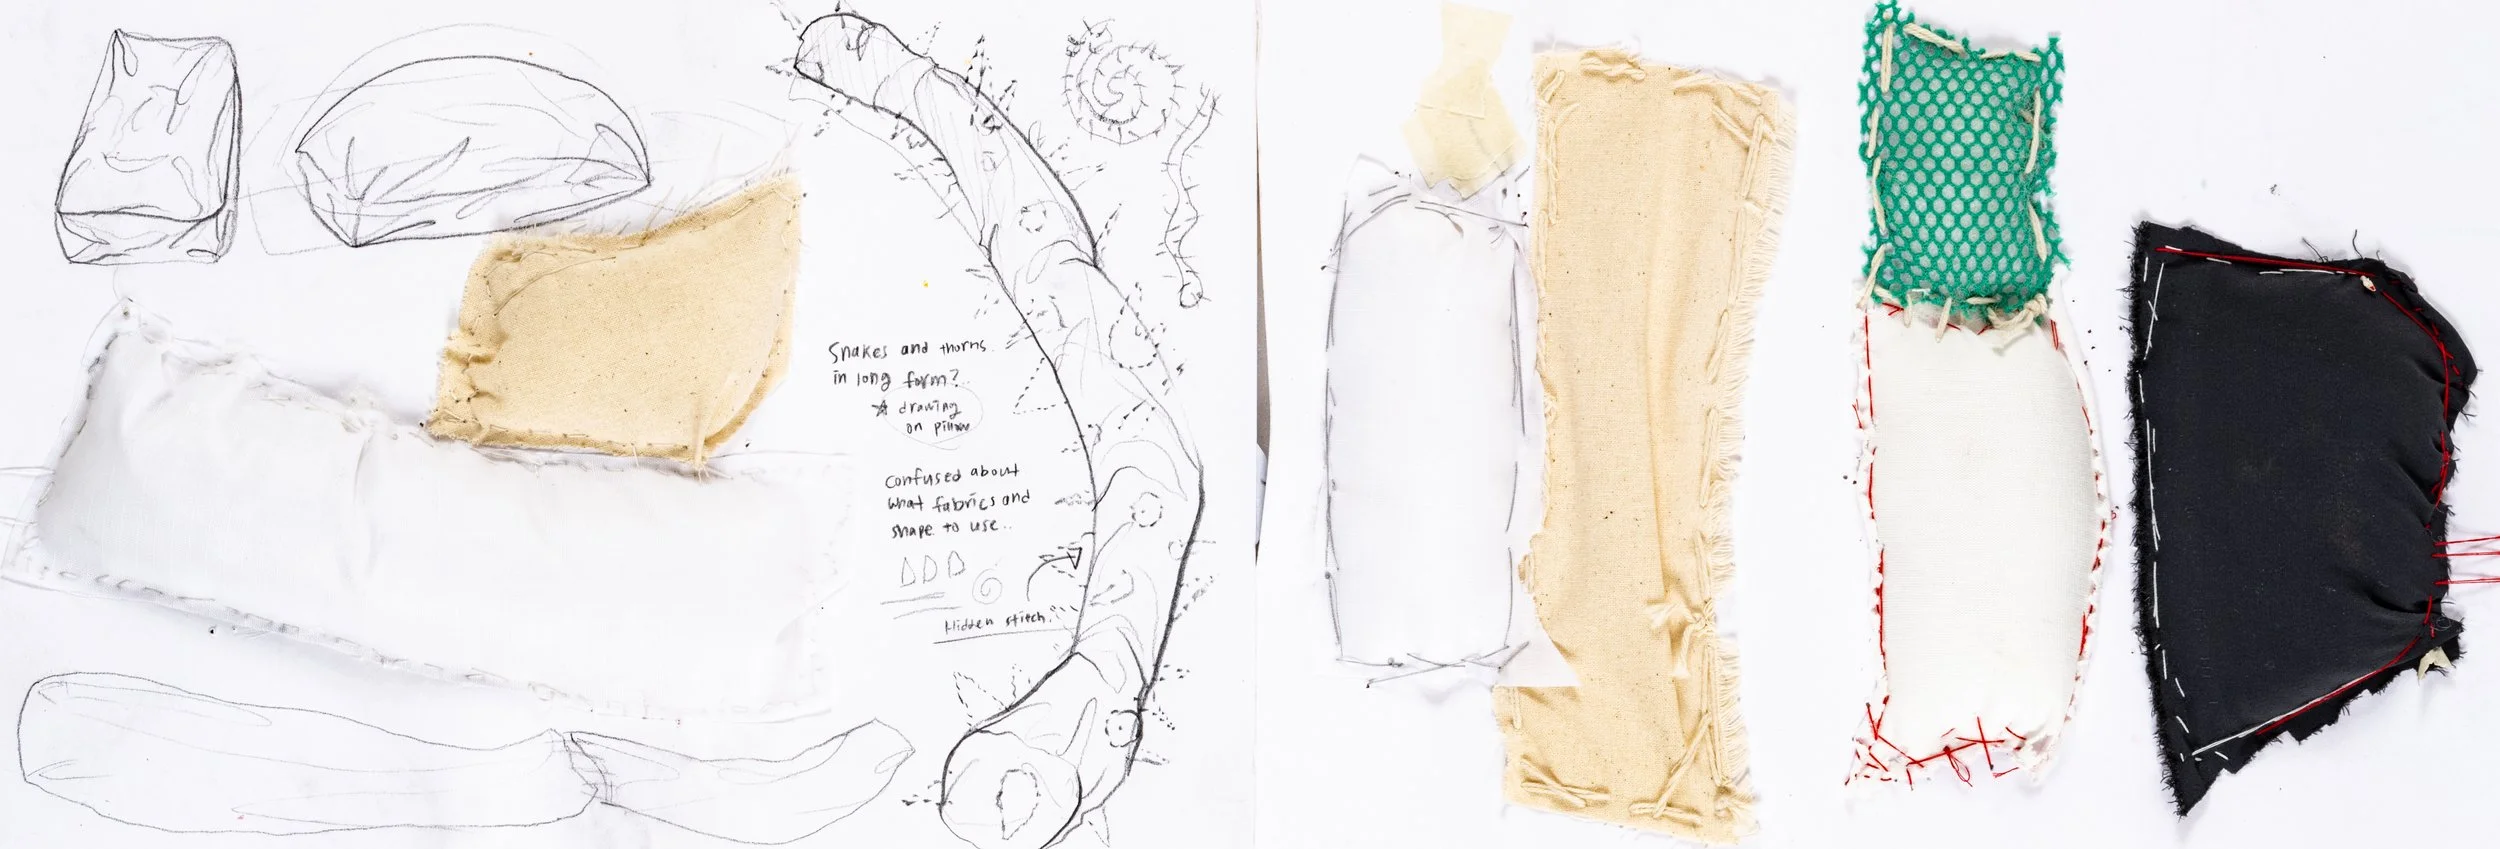 Snakes and thorns
in long form?
☆ drawing
on pillow
confused about
what fabrics and
shape to use..
Hidden stitch.